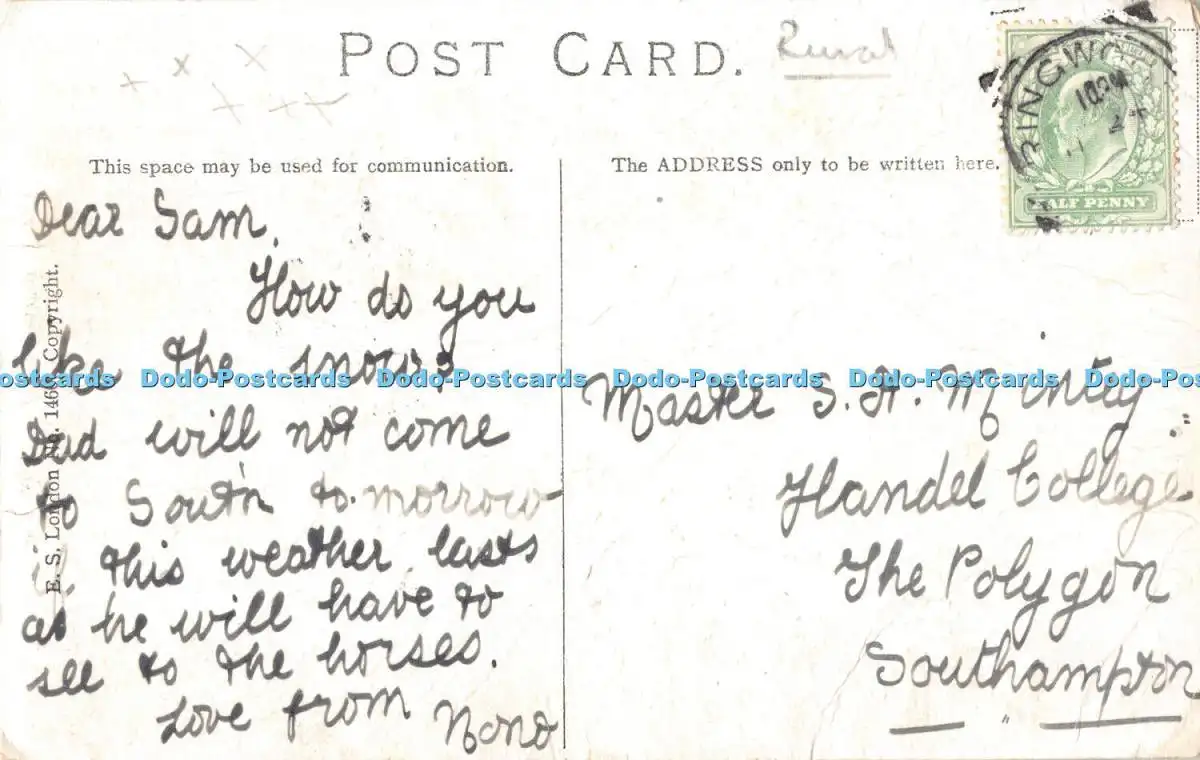 POST CARD.
Rural
RINGWO
10 PM
24
HALF PENNY
This space may be used for communication.
The ADDRESS only to be written here.
E. S. London No. 146 Copyright.
Dear Sam,
How do you
like the snow?
Dad will not come
to South'n to-morrow
if this weather lasts
as he will have to
see to the horses.
Love from Nono
Master S. A. Minty
Handel College
The Polygon
Southampton
Dodo-Postcards Dodo-Postcards Dodo-Postcards Dodo-Postcards Dodo-Postcards